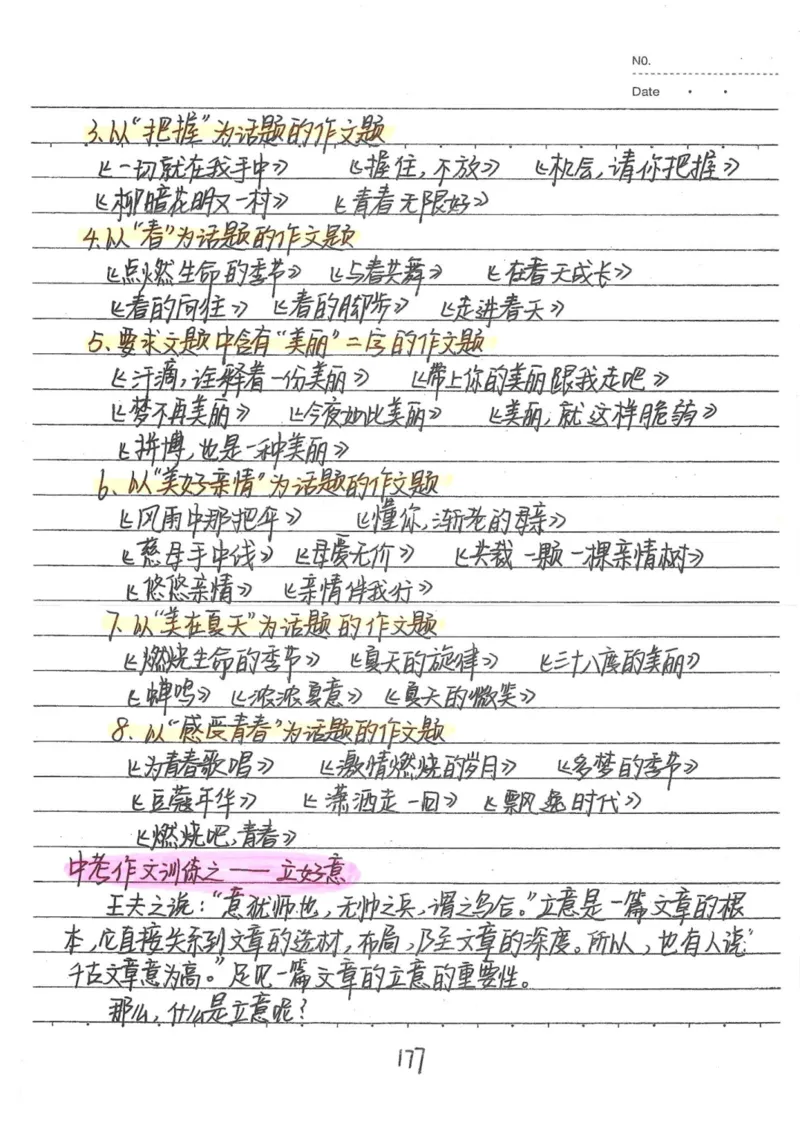 NO.
Date
3、以“把握”为话题的作文题
《一切就在我手中》 《握住，不放》 《机会，请你把握》
《柳暗花明又一村》 《青春无限好》
4、以“春”为话题的作文题
《点燃生命的季节》 《与春共舞》 《在春天成长》
《春的向往》 《春的脚步》 《走进春天》
5、要求文题中含有“美丽”二字的作文题
《汗滴，诠释着一份美丽》 《带上你的美丽跟我走吧》
《梦不再美丽》 《今夜如此美丽》 《美丽，就这样脆弱》
《拼博，也是一种美丽》
6、以“美好亲情”为话题的作文题
《风雨中那把伞》 《懂你，渐老的母亲》
《慈母手中线》 《母爱无价》 《共栽一颗一棵亲情树》
《悠悠亲情》 《亲情伴我行》
7、以“美在夏天”为话题的作文题
《燃烧生命的季节》 《夏天的旋律》 《三十八度的美丽》
《蝉鸣》 《浓浓夏意》 《夏天的微笑》
8、以“感受青春”为话题的作文题
《为青春歌唱》 《激情燃烧的岁月》 《多梦的季节》
《豆蔻年华》 《潇洒走一回》 《飘逸时代》
《燃烧吧，青春》
中考作文训练之——立好意
王夫之说：“意犹师也，无帅之兵，谓之乌合。”立意是一篇文章的根
本，它直接关系到文章的选材，布局，乃至文章的深度。所以，也有人说“
千古文章意为高。”足见一篇文章的立意的重要性。
那么，什么是立意呢？
177